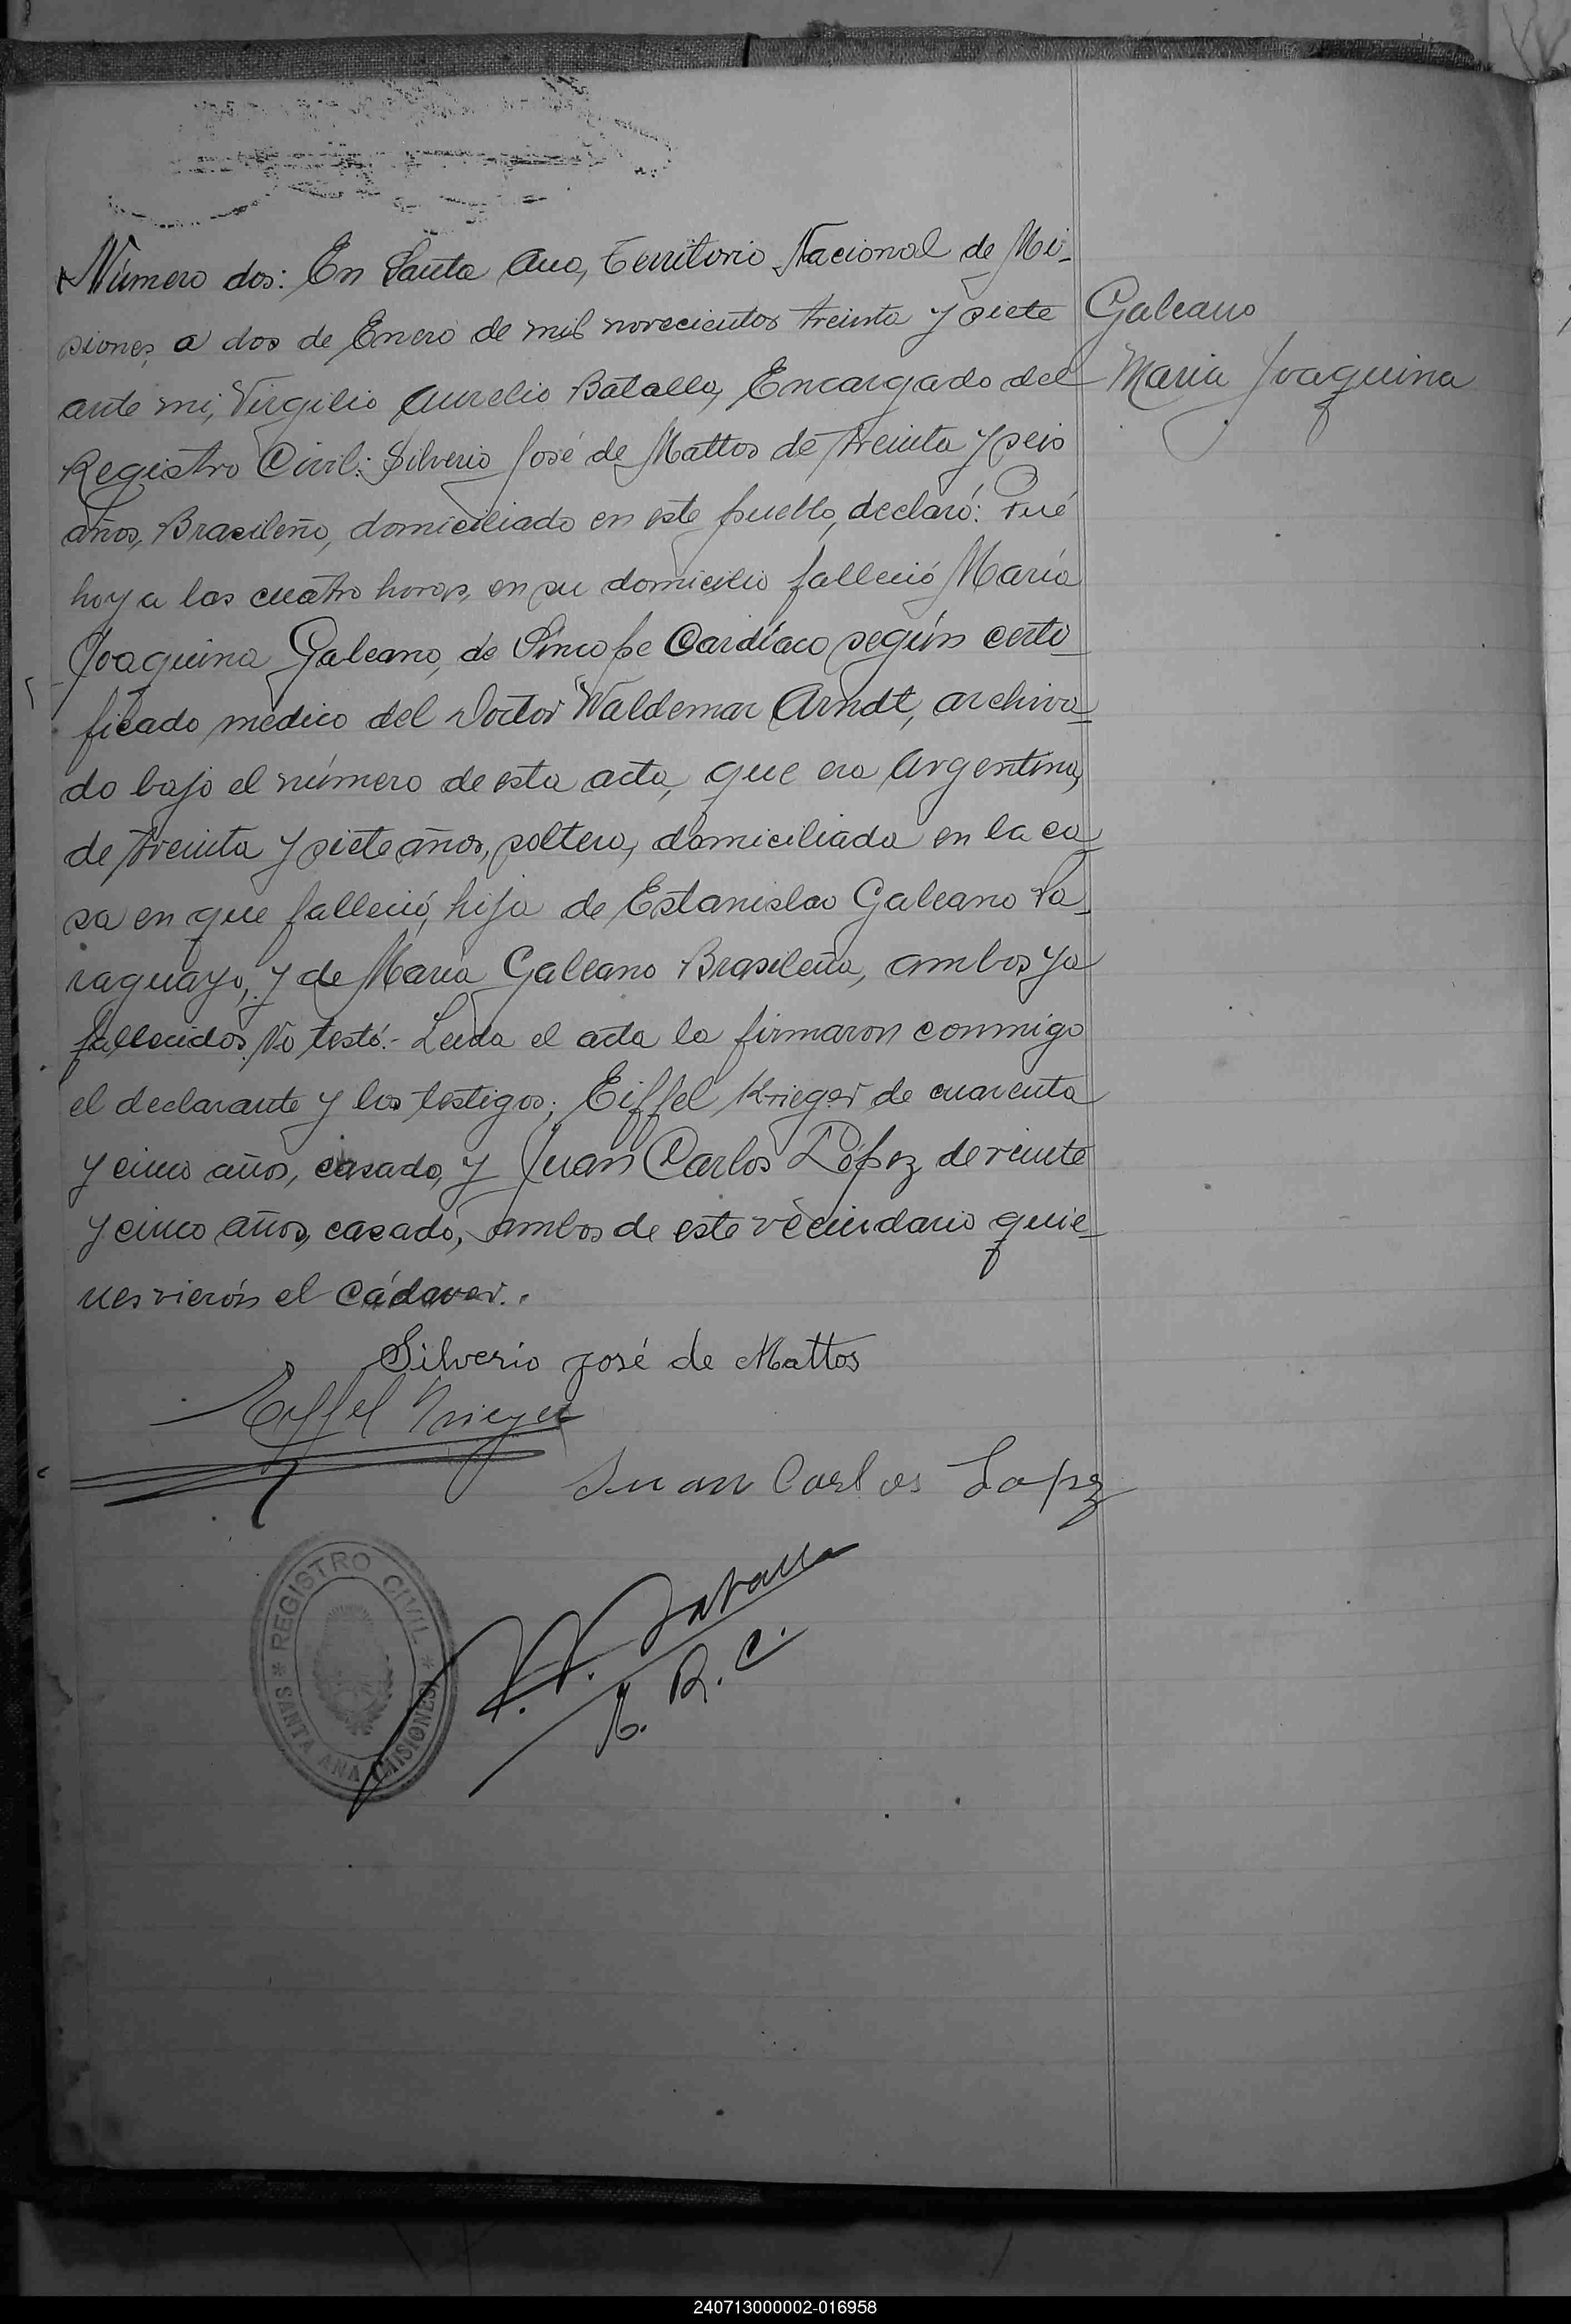 Número dos: En Santa Ana, Territorio Nacional de Mi-
siones, a dos de Enero de mil novecientos treinta y siete
ante mi, Virgilio Aurelio Batalla, Encargado del
Registro Civil: Silverio José de Mattos de treinta y seis
años, Brasileño, domiciliado en este pueblo, declaró: Qué
hoy a las cuatro horas, en su domicilio falleció María
Joaquina Galeano, de Síncope Cardíaco según certi-
ficado médico del Doctor Waldemar Arndt, archiva-
do bajo el número de esta acta, que era Argentina,
de treinta y siete años, soltera, domiciliada en la ca-
sa en que falleció, hija de Estanislao Galeano Pa-
raguayo, y de María Galeano Brasileña, ambos ya
fallecidos. No testó.- Leida el acta la firmaron conmigo
el declarante y los testigos; Eiffel Krieger de cuarenta
y cinco años, casado, y Juan Carlos López de veinte
y cinco años, casado, ambos de este vecindario quie-
nes vierón el cádaver..
Galeano
Maria Joaquina
Silverio José de Mattos
Eiffel Krieger
Juan Carlos Lopez
V. A. Batalla
E. R. C.
REGISTRO CIVIL
SANTA ANA (MISIONES)
240713000002-016958